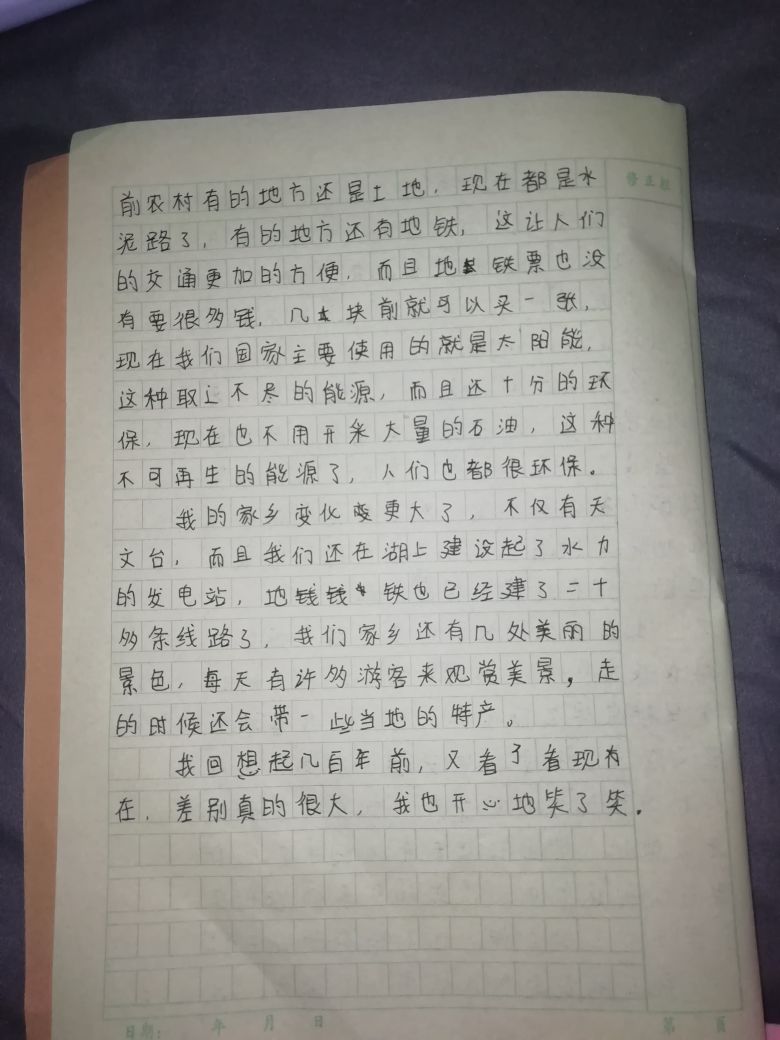 修正栏
前农村有的地方还是土地，现在都是水
泥路了，有的地方还有地铁，这让人们
的交通更加的方便，而且地铁票也没
有要很多钱，几块前就可以买一张，
现在我们国家主要使用的就是太阳能，
这种取之不尽的能源，而且还十分的环
保，现在也不用开采大量的石油，这种
不可再生的能源了，人们也都很环保。
我的家乡变化变更大了，不仅有天
文台，而且我们还在湖上建设起了水力
的发电站，地铁也已经建了二十
多条线路了，我们家乡还有几处美丽的
景色，每天有许多游客来观赏美景，走
的时候还会带一些当地的特产。
我回想起几百年前，又看了看现有
在，差别真的很大，我也开心地笑了笑。
日期： 年 月 日
第 页